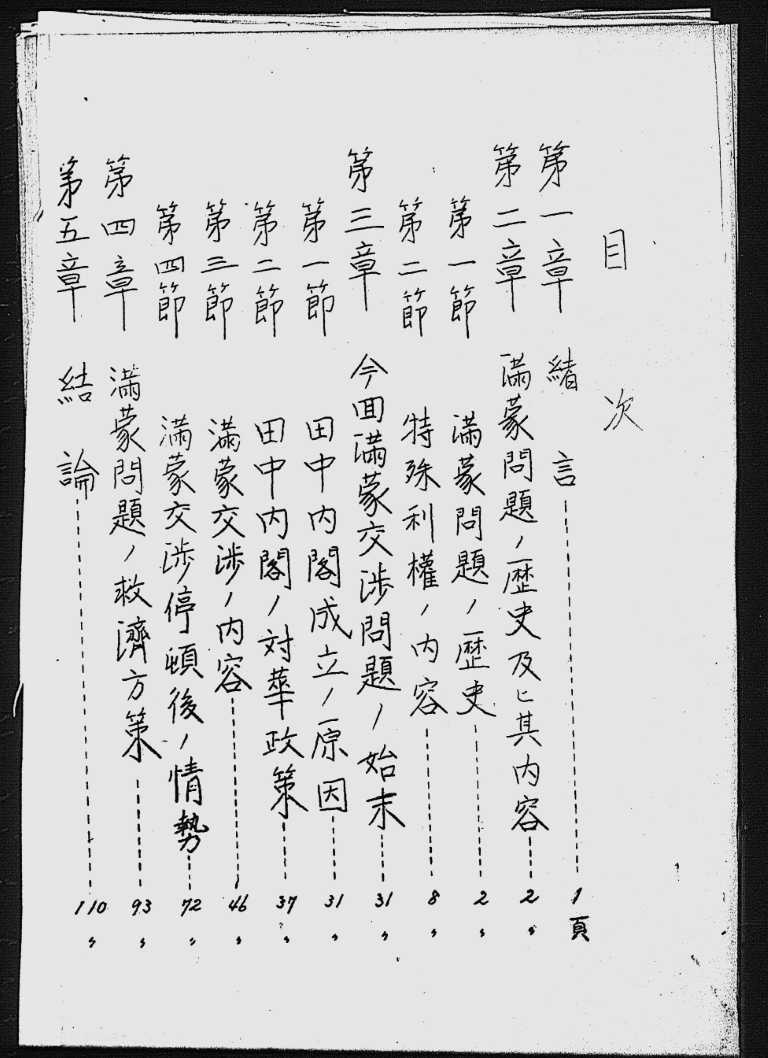 目次
第一章 緒言 1頁
第二章 満蒙問題ノ歴史及ヒ其内容 2〃
第一節 満蒙問題ノ歴史 2〃
第二節 特殊利權ノ内容 8〃
第三章 今回満蒙交渉問題ノ始末 31〃
第一節 田中内閣成立ノ原因 31〃
第二節 田中内閣ノ対華政策 37〃
第三節 満蒙交渉ノ内容 46〃
第四節 満蒙交渉停頓後ノ情勢 72〃
第四章 満蒙問題ノ救濟方策 93〃
第五章 結論 110〃